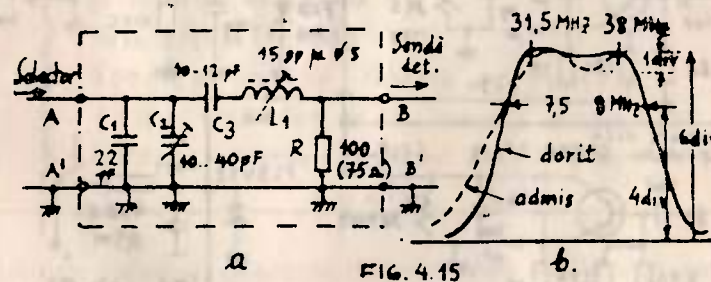 Selector
A
A'
C1
22
pF
C2
10..40pF
10-12 pF
C3
15 sp μ φ5
L1
R
100
(75Ω)
Sondă
det.
B
B'
a
31,5 MHz
38 MHz
1div
7,5
8 MHz
6div
dorit
admis
4div
b.
FIG. 4.15